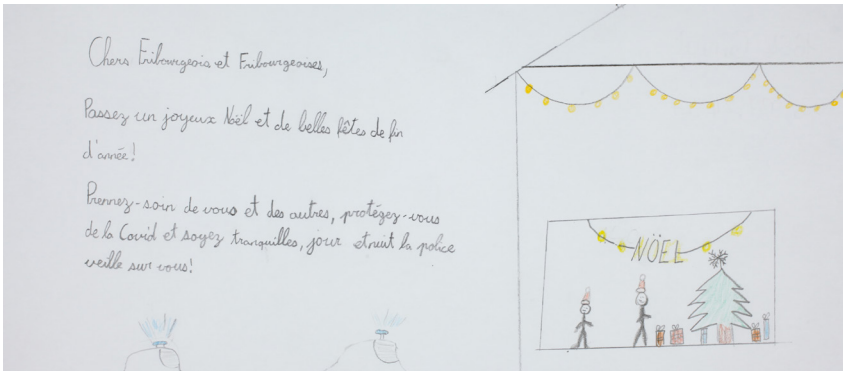 Chers Fribourgeois et Fribourgeoises,
Passez un joyeux Noël et de belles fêtes de fin
d'année!
Prennez-soin de vous et des autres, protégez-vous
de la Covid et soyez tranquilles, jour et nuit la police
veille sur vous!
NÖEL